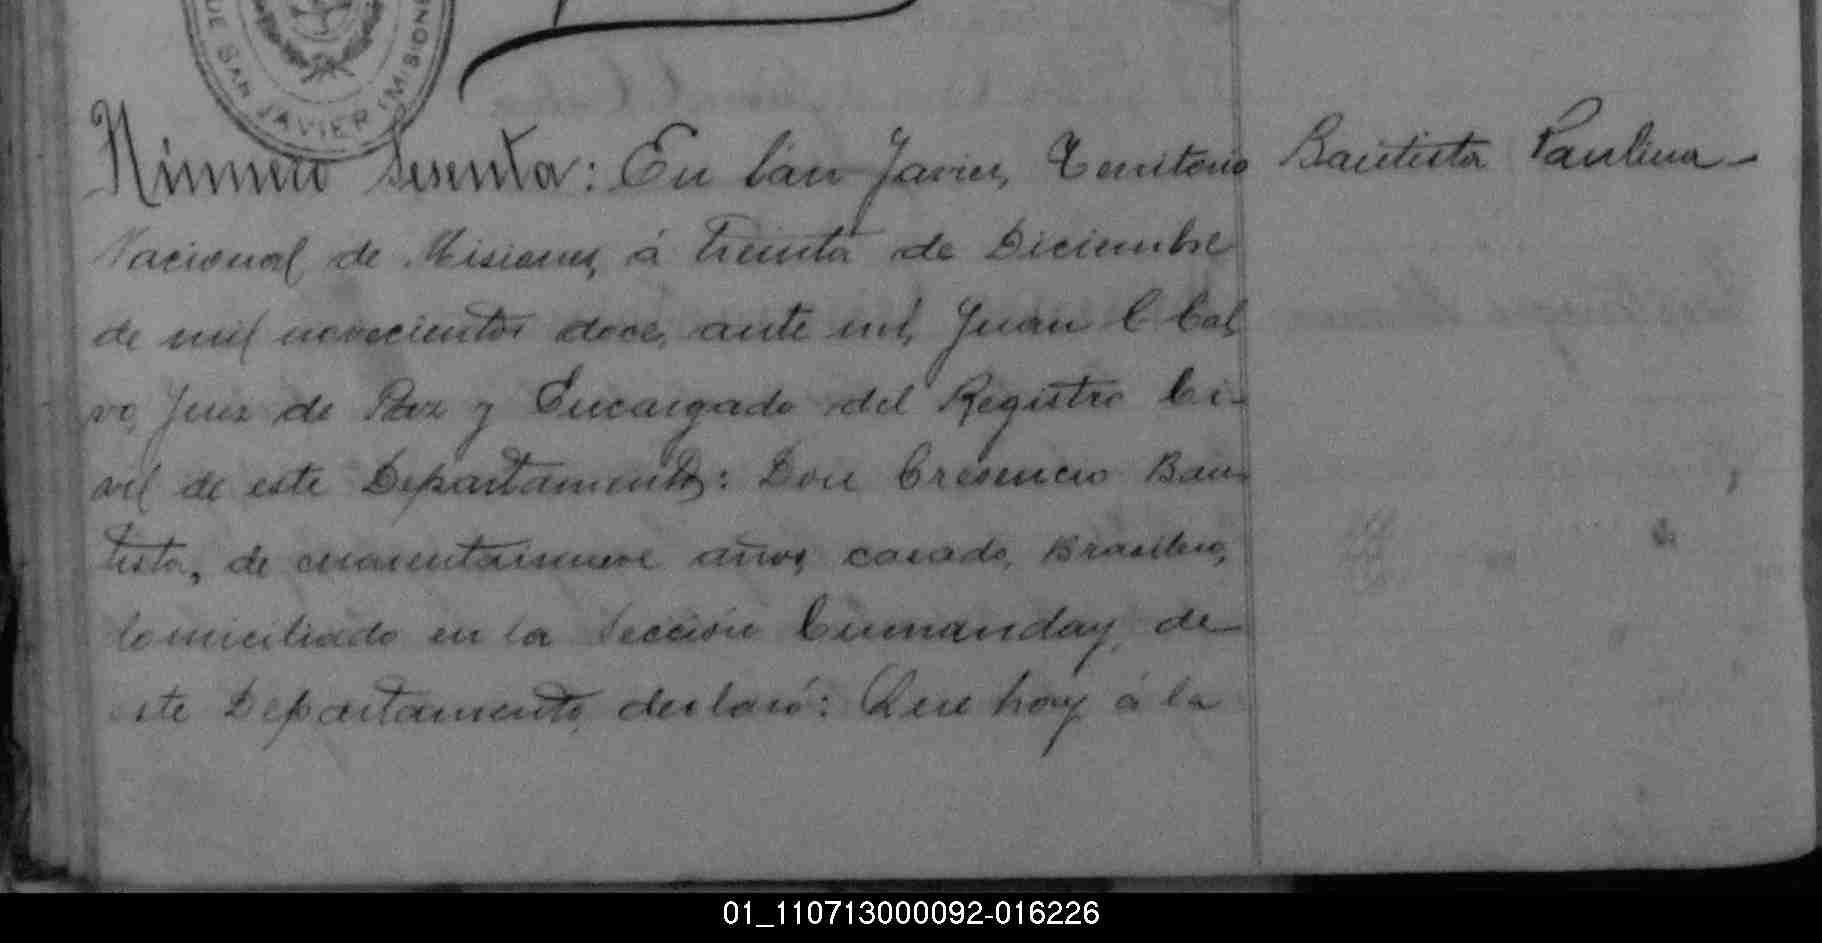 QUE SAN JAVIER (MISIONE
Número Sesenta: En San Javier, Territorio
Bautista Paulina-
Nacional de Misiones, á treinta de Diciembre
de mil novecientos doce, ante mí, Juan C Cal
vo, Juez de Paz y Encargado del Registro Ci-
vil de este Departamento: Don Cresencio Bau-
tista, de cuarentainueve años, casado, Brasilero,
domiciliado en la Sección Cumanday, de
este Departamento, declaró: Que hoy á la
01_110713000092-016226